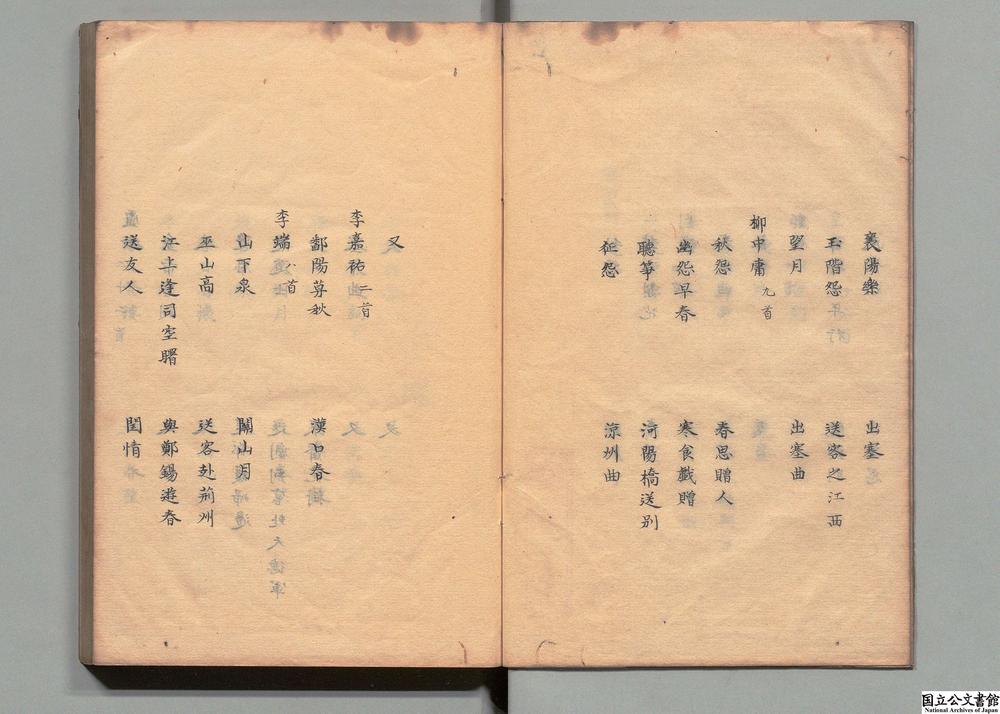 襄陽樂　出塞
玉階怨　送客之江西
望月　出塞曲
柳中庸 九首
秋怨　春思贈人
幽怨早春　寒食戲贈
聽箏　河陽橋送別
征怨　涼州曲
又
李嘉祐 二首
鄱陽暮秋　漢口春
李端 八首
山下泉　關山月
巫山高　送客赴荊州
江上逢司空曙　與鄭錫遊春
送友人　閨情
国立公文書館
National Archives of Japan